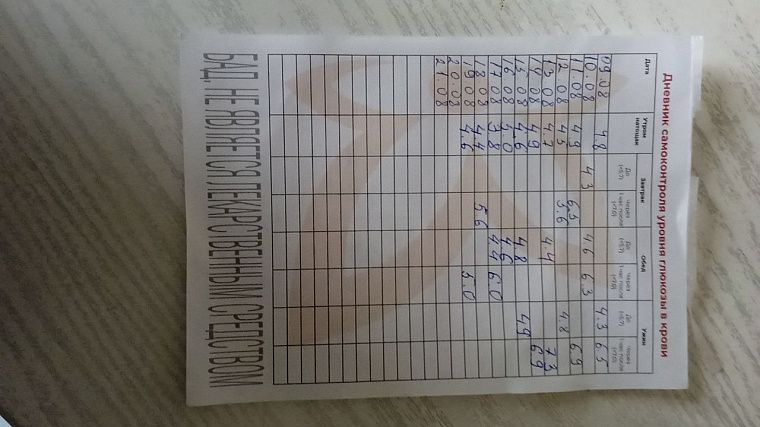 Дневник самоконтроля уровня глюкозы в крови
Дата Утром натощак Завтрак Обед Ужин
До Через 1 час после До Через 1 час после До Через 1 час после
09.08 4.8 4.3 6.5
10.08 4.3 4.6 6.3
11.08 4.9 6.5 6.9
12.08 4.5 5.6 4.8
13.08 4.7 4.4 7.3
14.08 4.9 6.9
15.08 4.6 4.8 4.9
16.08 5.0 4.6
17.08 3.8 4.4 6.0
18.08 4.4 5.6
19.08 4.6 5.0
20.08
21.08
БАД. НЕ ЯВЛЯЕТСЯ ЛЕКАРСТВЕННЫМ СРЕДСТВОМ